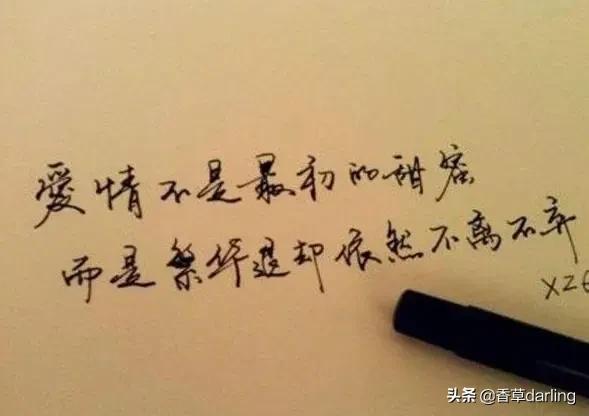 愛情不是最初的甜密
而是繁华退却依然不离不弃
头条 @香草darling